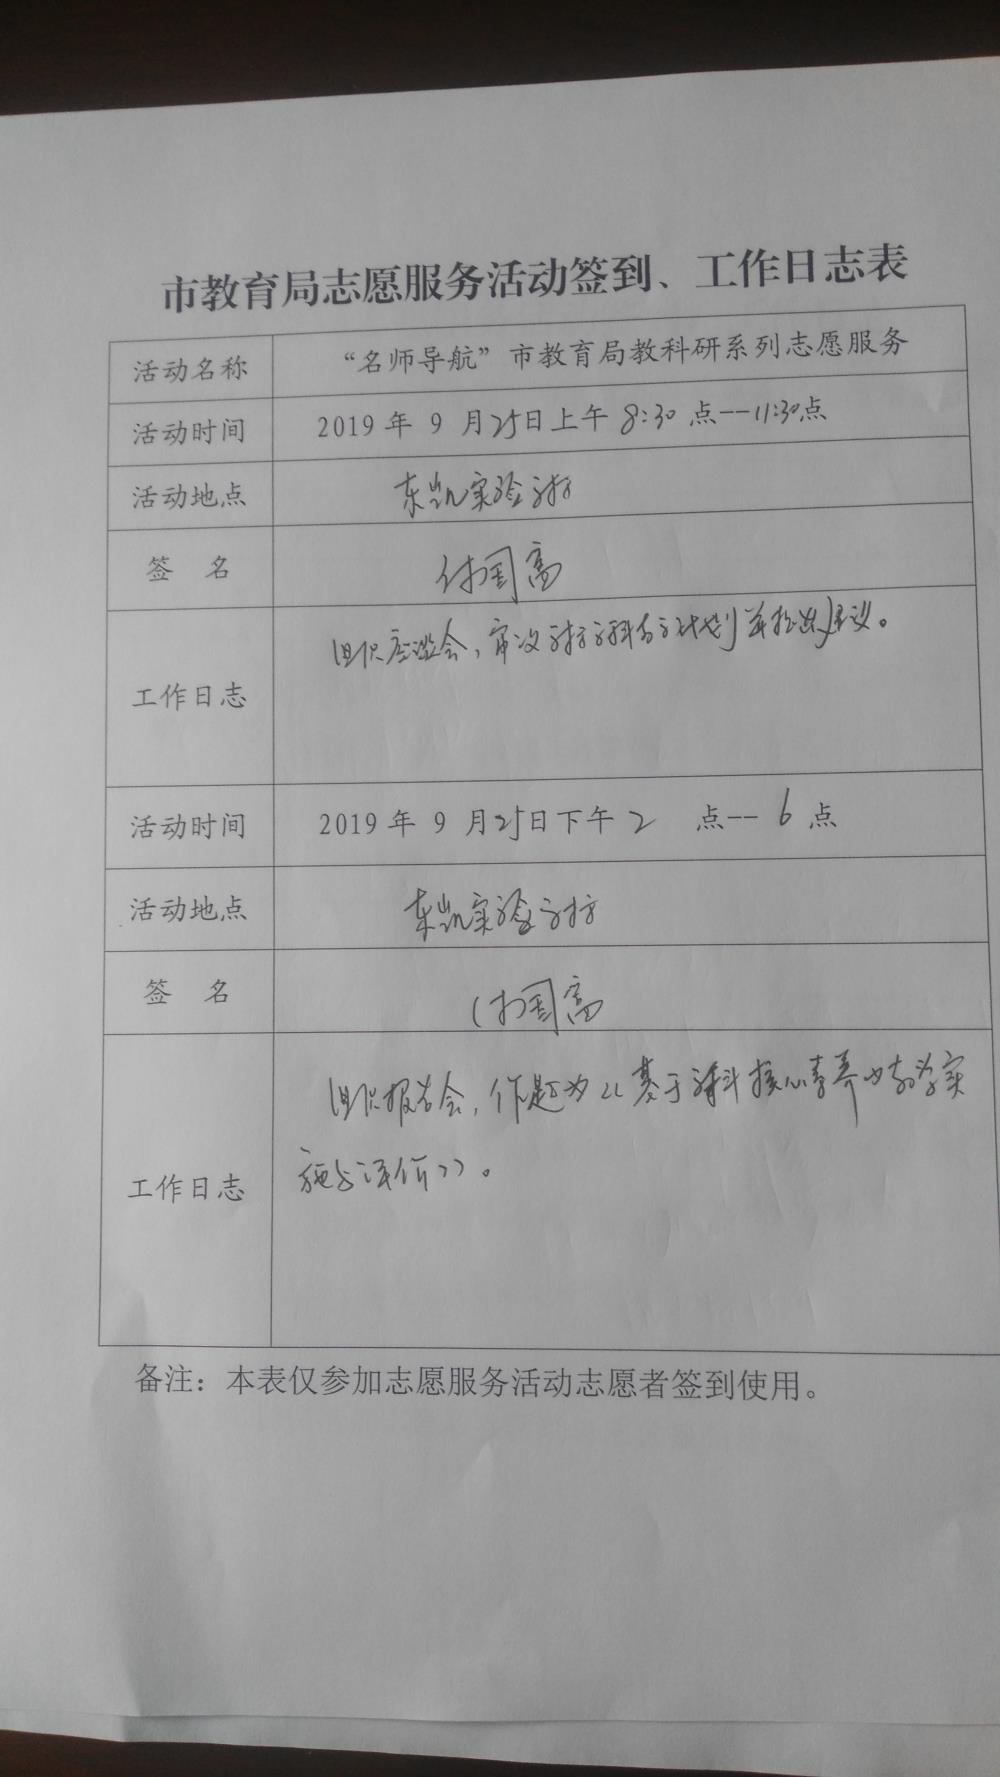 市教育局志愿服务活动签到、工作日志表
活动名称 “名师导航”市教育局教科研系列志愿服务
活动时间 2019年 9 月25日上午 8:30 点--11:30点
活动地点 东凯实验学校
签 名 付国高
工作日志 组织座谈会，审议学校 计划并提出建议。
活动时间 2019年 9 月25日下午 2 点-- 6 点
活动地点 东凯实验学校
签 名 付国高
工作日志 组织报告会，作题为《基于学科核心素养的教学实
施与评价》。
备注：本表仅参加志愿服务活动志愿者签到使用。